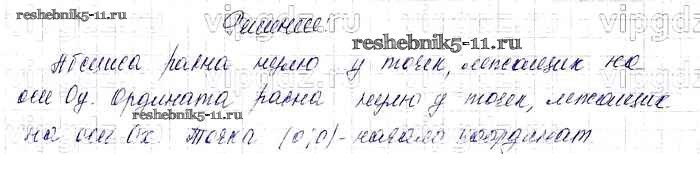 Решение:
reshebnik5-11.ru
reshebnik5-11.ru
Абсциса равна нулю у точек, лежащих на
оси Оy. Ордината равна нулю у точек, лежащих
reshebnik5-11.ru
на оси Оx. Точка (0;0) - начало координат